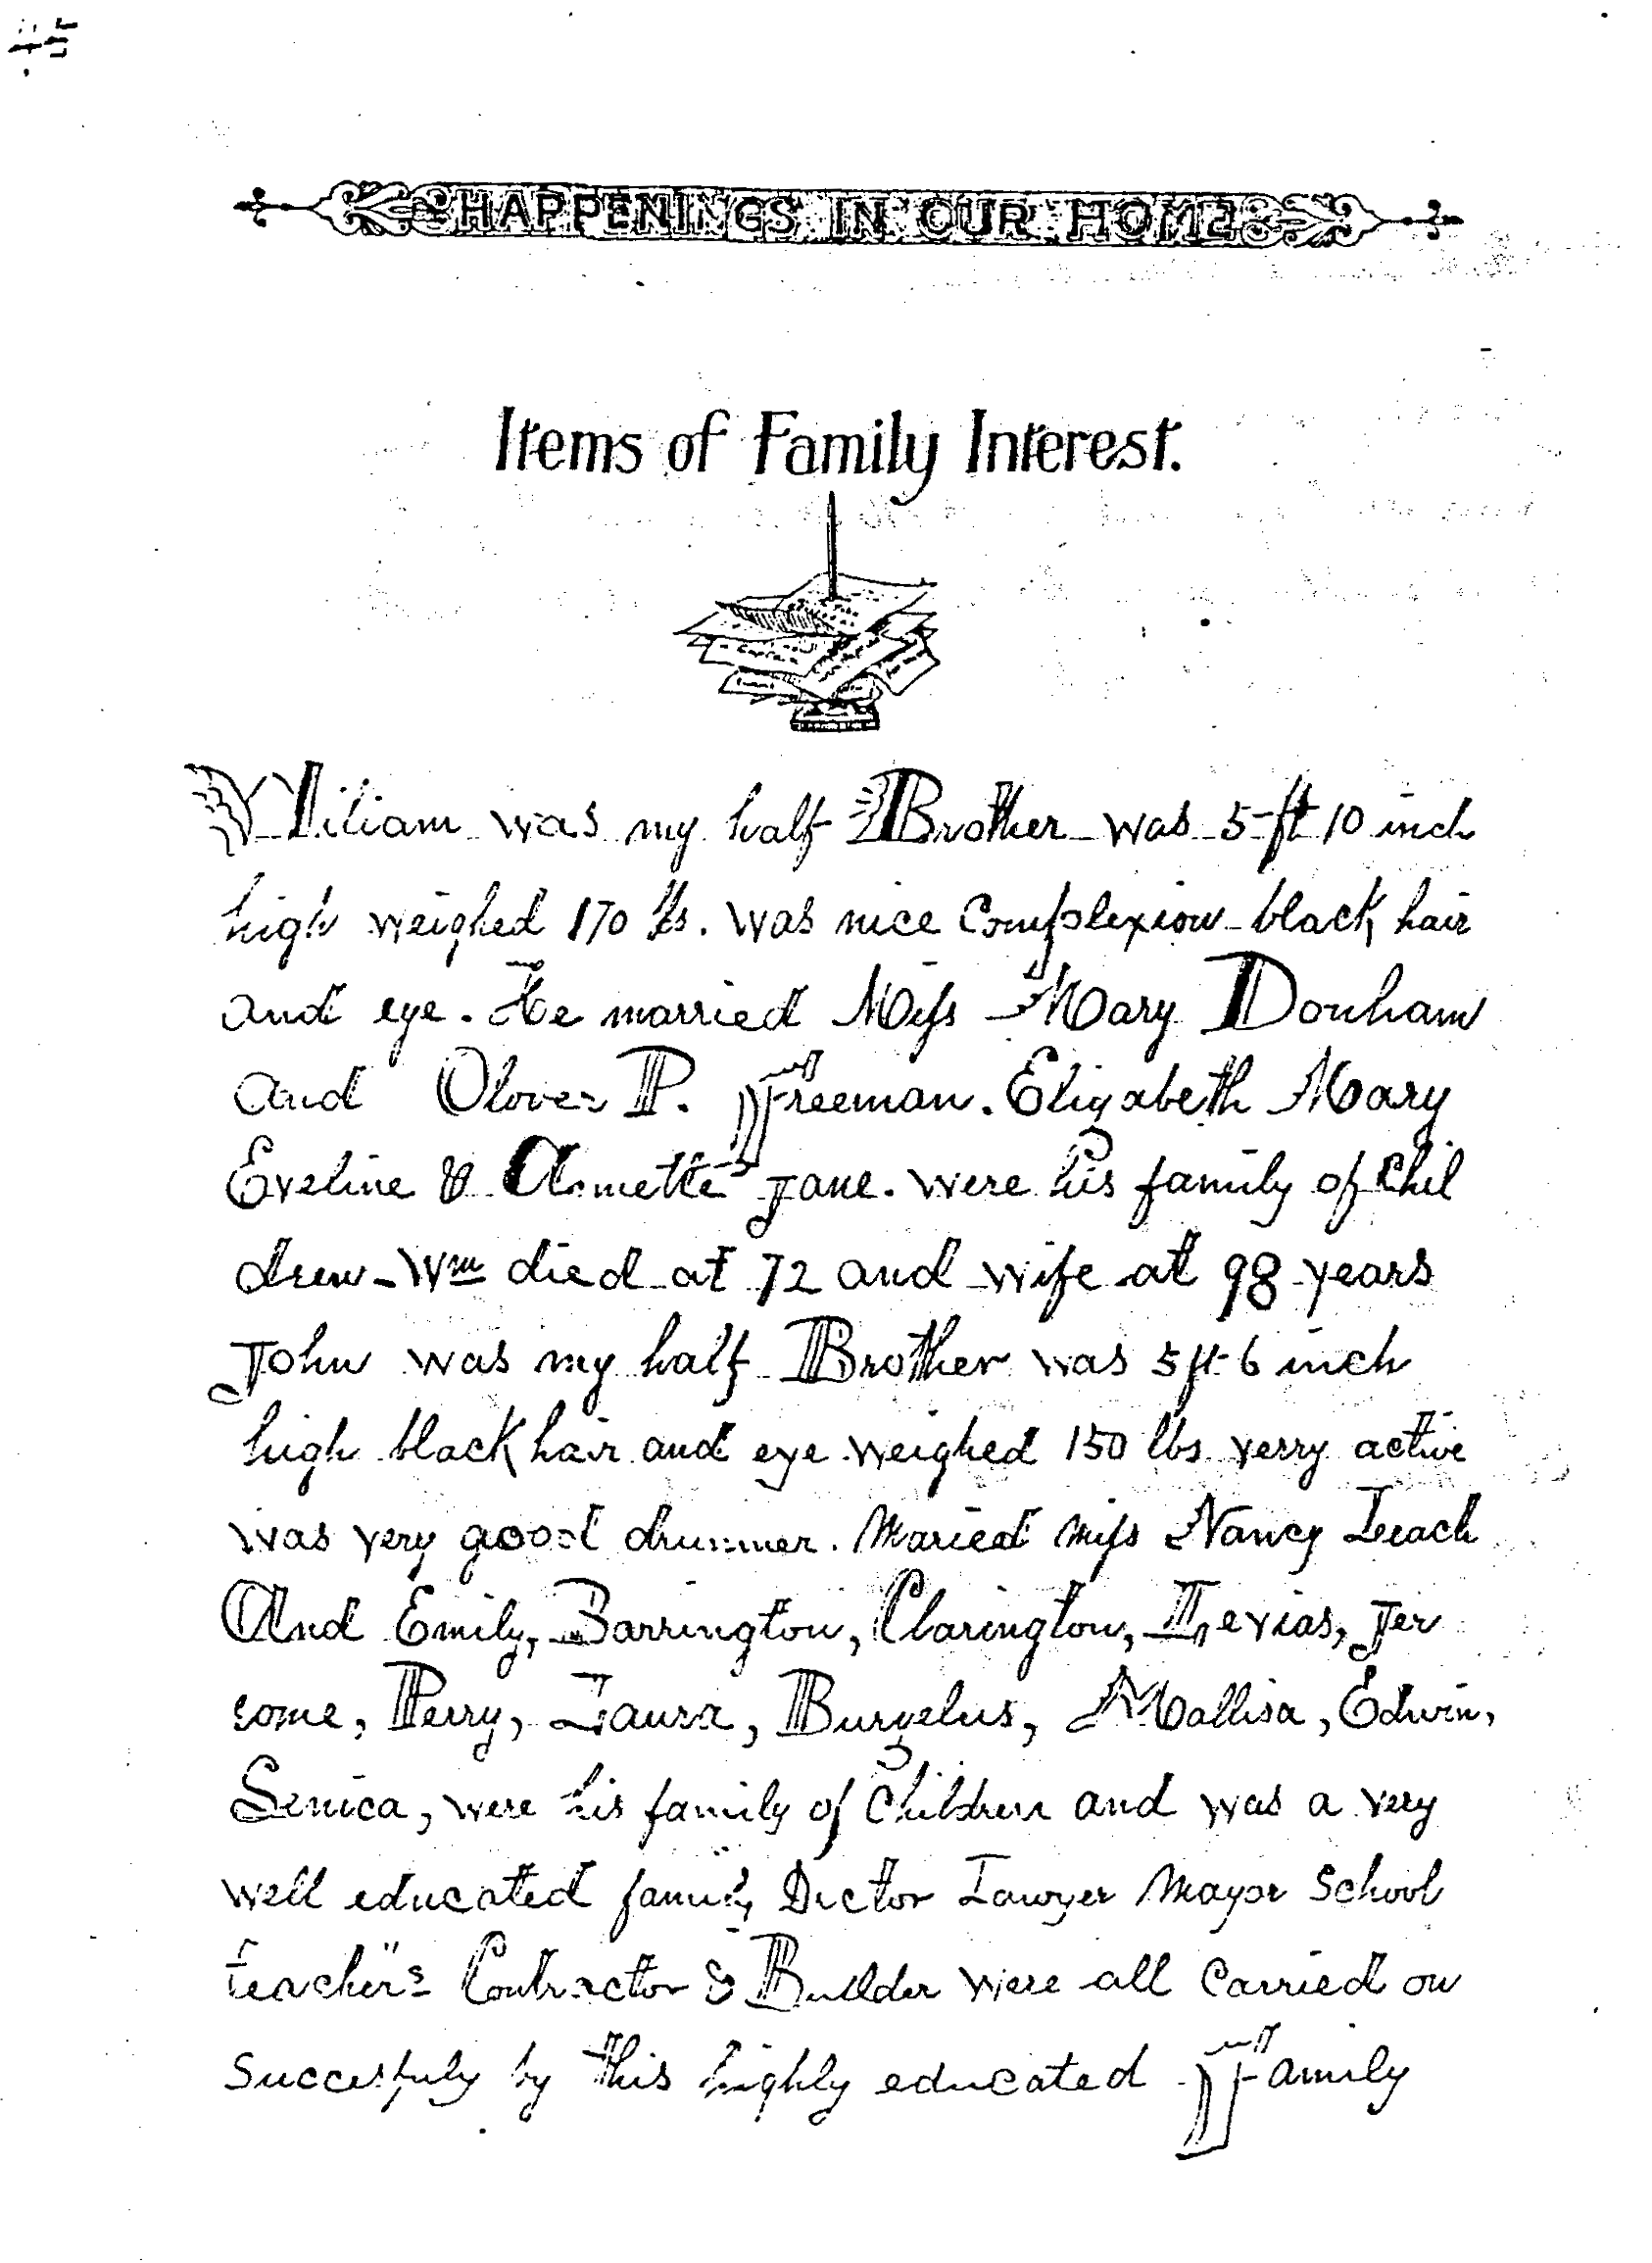 45
HAPPENINGS IN OUR HOME
Items of Family Interest.
Wiliam was my half Brother was 5 ft 10 inch
high weighed 170 lbs. was nice Complexion black hair
and eye. He married Miss Mary Donham
and Olover P. Freeman. Elizabeth Mary
Eveline & Armette Jane. were his family of Chil
dren - Wm died at 72 and wife at 98 years
John was my half Brother was 5 ft 6 inch
high black hair and eye weighed 150 lbs verry active
was very good drummer. Maried Miss Nancy Leach
And Emily, Barrington, Clarington, Levias, Jer
rome, Perry, Laura, Burgelus, Mallisa, Edwin,
Senica, were his family of Children and was a very
well educated family Doctor Lawyer Mayor School
teacher"s Contractor & Builder were all Carried on
Succesfuly by this highly educated Family